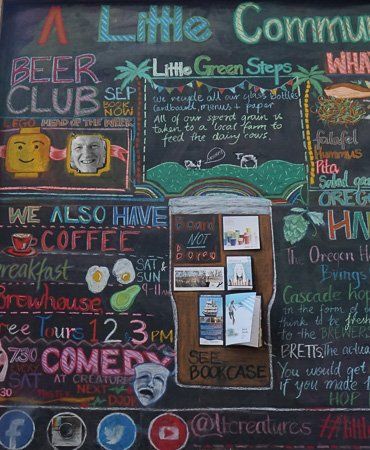 A Little Commun
BEER
CLUB SEP
BOOK
NOW
LEGO HEAD OF THE WEEK
Little Green Steps
We recycle all our glass bottles
cardboard, menus + paper
All of our spend grain is
taken to a local farm to
feed the dairy cows.
WHA
falafel
Hummus
Pita
Salad
OREGO
HA
WE ALSO HAVE
COFFEE
Breakfast SAT &
SUN
9-11
Brewhouse
ree Tours 1 2 3 PM
7:30
SAT
COMEDY
AT CREATURES
NEXT
board
NOT
bored
SEE
BOOKCASE
The Oregon Ha
Brings
Cascade hop
in the form of
think to be fresh
to the BREWER
BRETTS. The actua
You would get
if you made
HOP
@ltcreatures #little